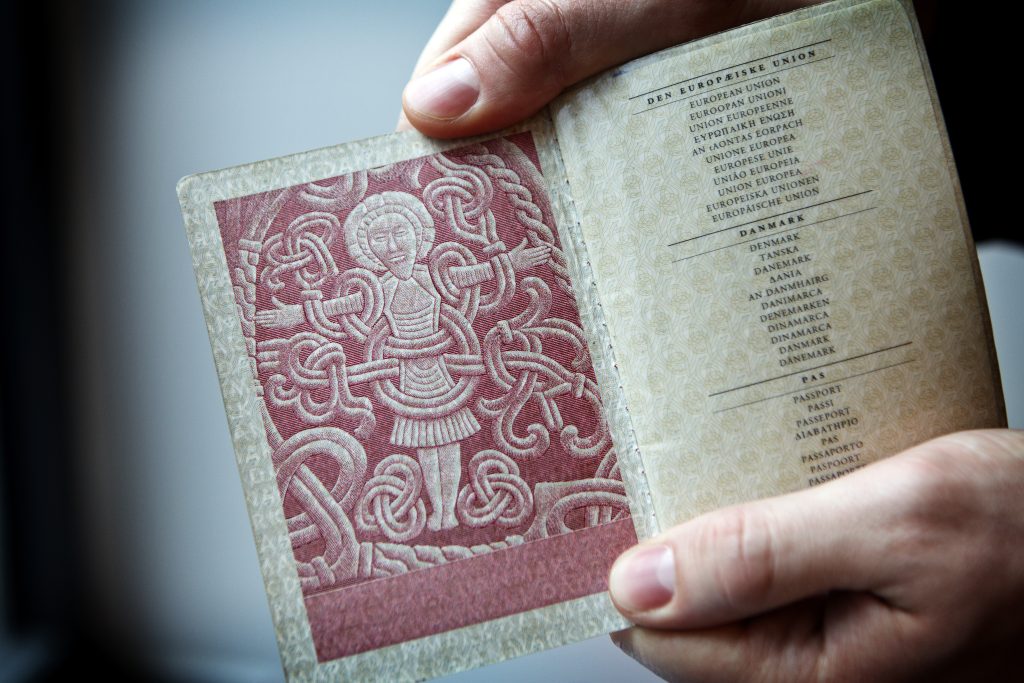 DEN EUROPÆISKE UNION
EUROPEAN UNION
EUROOPAN UNIONI
UNION EUROPEENNE
ΕΥΡΩΠΑΙΚΗ ΕΝΩΣΗ
AN tAONTAS EORPACH
UNIONE EUROPEA
EUROPESE UNIE
UNIÃO EUROPEIA
UNION EUROPEA
EUROPEISKA UNIONEN
EUROPÄISCHE UNION
DANMARK
DENMARK
TANSKA
DANEMARK
ΔΑΝΙΑ
AN DANMHAIRG
DANIMARCA
DENEMARKEN
DINAMARCA
DINAMARCA
DANMARK
DÄNEMARK
PAS
PASSPORT
PASSI
PASSEPORT
ΔΙΑΒΑΤΗΡΙΟ
PAS
PASSAPORTO
PASPOORT
PASSAPORTE